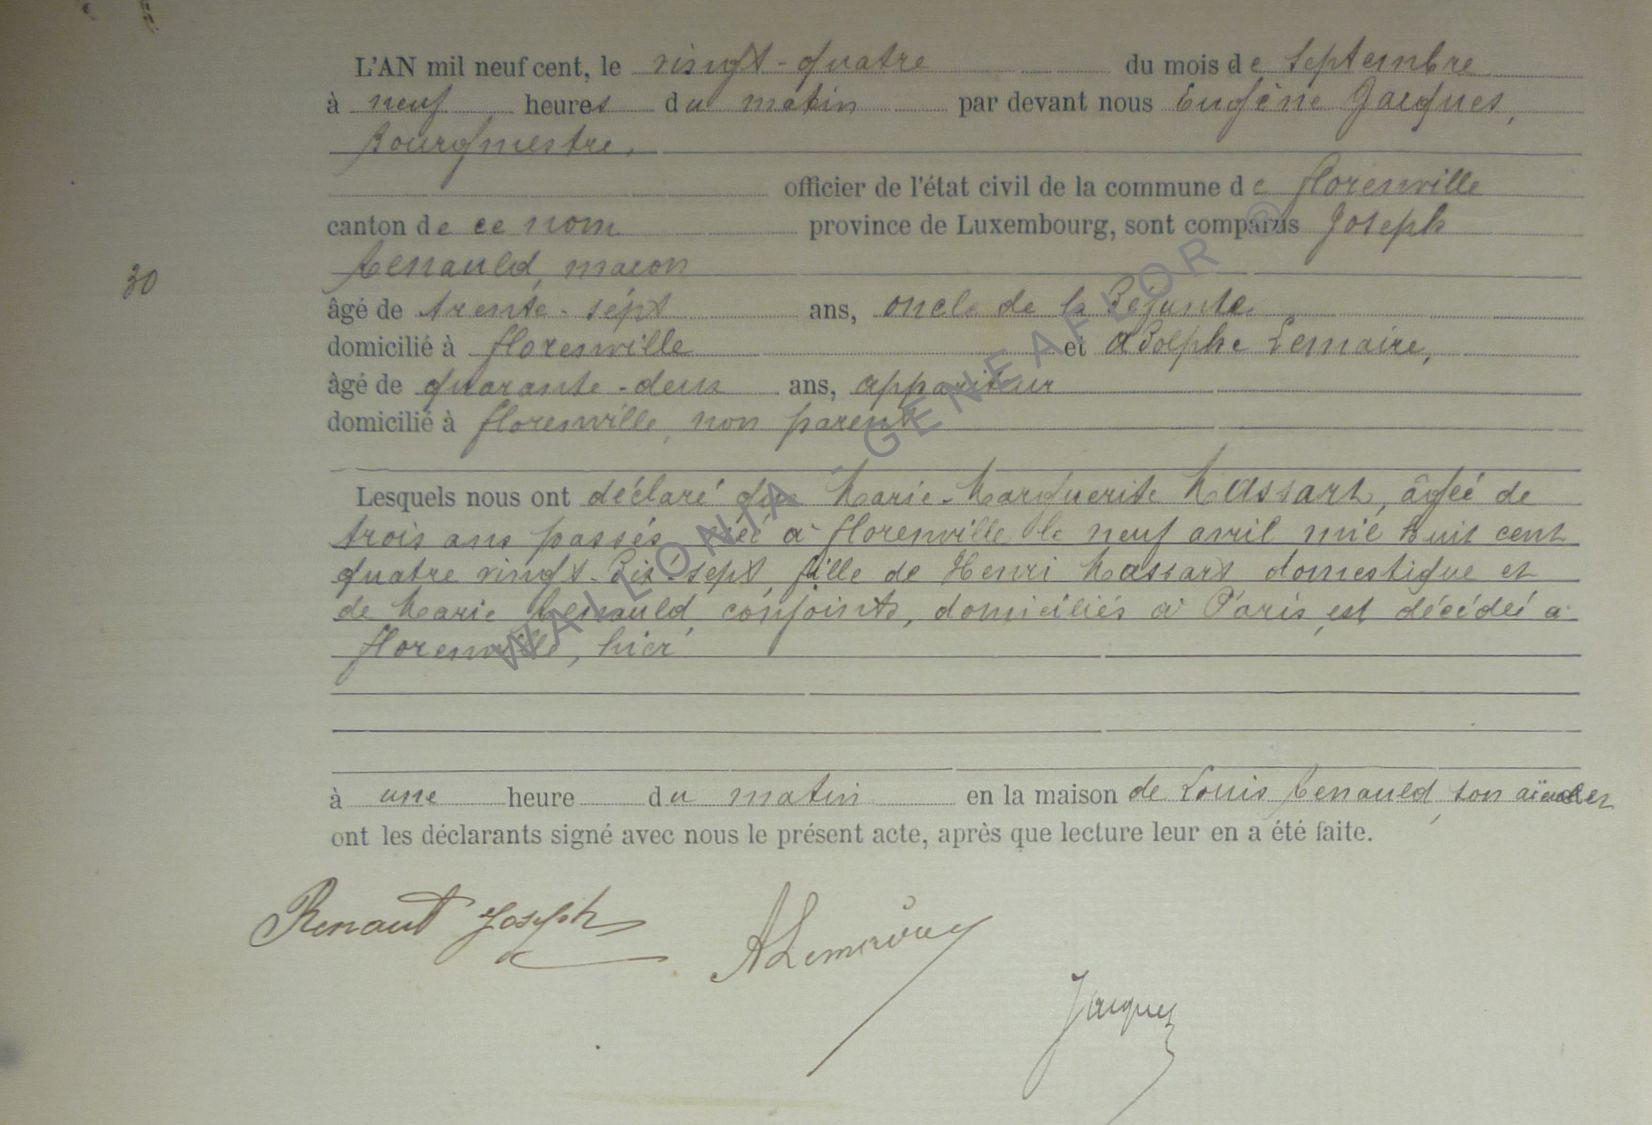 L'AN mil neuf cent, le vingt-quatre du mois de Septembre
à neuf heures du matin par devant nous Eugène Jacques,
Bourgmestre,
officier de l'état civil de la commune de florenville
canton de ce nom province de Luxembourg, sont comparus Joseph
30
Renauld, macon
âgé de trente-sept ans, oncle de la Défunte
domicilié à florenville et Adolphe Lemaire,
âgé de quarante-deux ans, appariteur
domicilié à florenville, non parent
Lesquels nous ont déclaré que Marie-Marguerite Massart, âgée de
trois ans passés, née à florenville le neuf avril mil huit cent
quatre vingt-dix-sept, fille de Henri Massart domestique et
de Marie Renauld conjoints, domiciliés à Paris, est décédée à
florenville, hier
à une heure du matin en la maison de Louis Renauld, son aïeul et
ont les déclarants signé avec nous le présent acte, après que lecture leur en a été faite.
Renaut Joseph
ALemaire
Jacques
WALLONIA - GENEAFLOR ©